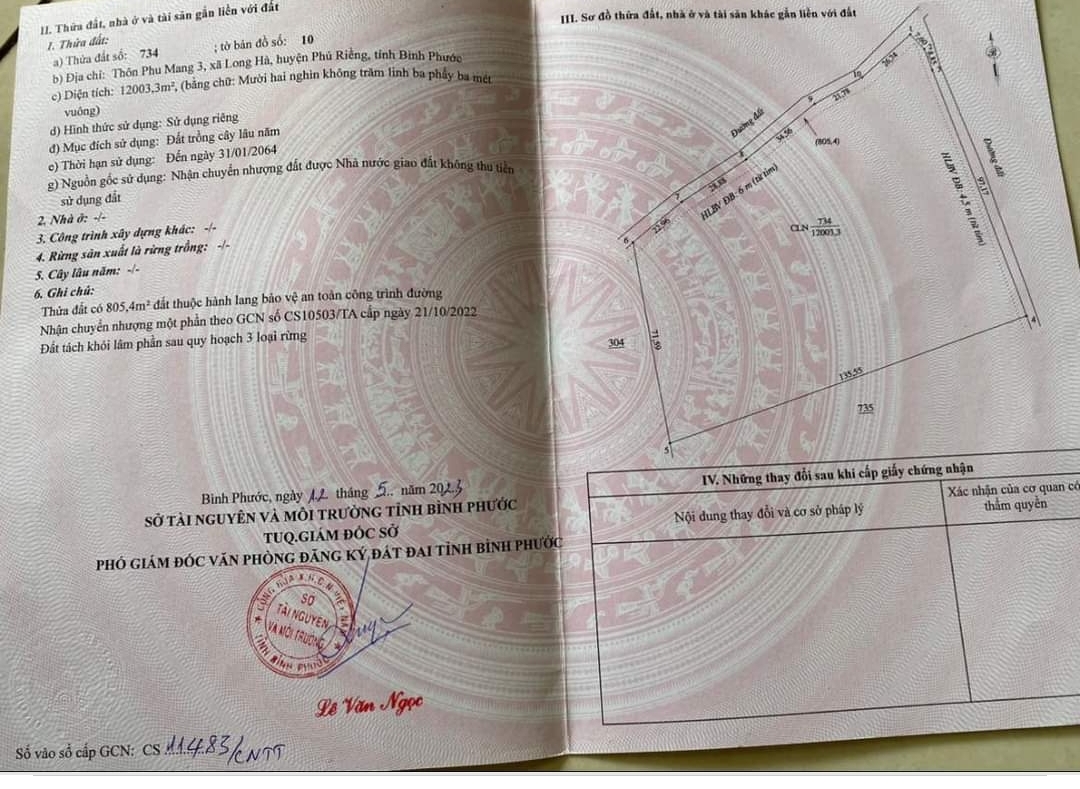 II. Thửa đất, nhà ở và tài sản gắn liền với đất
1. Thửa đất:
a) Thửa đất số: 734 ; tờ bản đồ số: 10
b) Địa chỉ: Thôn Phu Mang 3, xã Long Hà, huyện Phú Riềng, tỉnh Bình Phước
c) Diện tích: 12003,3m², (bằng chữ: Mười hai nghìn không trăm linh ba phẩy ba mét
vuông)
d) Hình thức sử dụng: Sử dụng riêng
đ) Mục đích sử dụng: Đất trồng cây lâu năm
e) Thời hạn sử dụng: Đến ngày 31/01/2064
g) Nguồn gốc sử dụng: Nhận chuyển nhượng đất được Nhà nước giao đất không thu tiền
sử dụng đất
2. Nhà ở: -/-
3. Công trình xây dựng khác: -/-
4. Rừng sản xuất là rừng trồng: -/-
5. Cây lâu năm: -/-
6. Ghi chú:
Thửa đất có 805,4m² đất thuộc hành lang bảo vệ an toàn công trình đường
Nhận chuyển nhượng một phần theo GCN số CS10503/TA cấp ngày 21/10/2022
Đất tách khỏi lâm phần sau quy hoạch 3 loại rừng
Bình Phước, ngày 12 tháng 5.. năm 2023
SỞ TÀI NGUYÊN VÀ MÔI TRƯỜNG TỈNH BÌNH PHƯỚC
TUQ.GIÁM ĐỐC SỞ
PHÓ GIÁM ĐỐC VĂN PHÒNG ĐĂNG KÝ ĐẤT ĐAI TỈNH BÌNH PHƯỚC
CỘNG HÒA X.H.C.N VIỆT NAM
SỞ
TÀI NGUYÊN
VÀ MÔI TRƯỜNG
TỈNH BÌNH PHƯỚC
Lê Văn Ngọc
Số vào sổ cấp GCN: CS 11483/CNTT
III. Sơ đồ thửa đất, nhà ở và tài sản khác gắn liền với đất
7,00
26,74
10
21,78
9
Đường đất
34,56
(805,4)
8
28,88
HLBV ĐB: 6 m (từ tim)
7
22,96
6
Đường đất
97,17
HLBV ĐB: 4,5 m (từ tim)
CLN 734
12003,3
4
71,59
304
135,55
735
5
IV. Những thay đổi sau khi cấp giấy chứng nhận
Nội dung thay đổi và cơ sở pháp lý
Xác nhận của cơ quan có
thẩm quyền